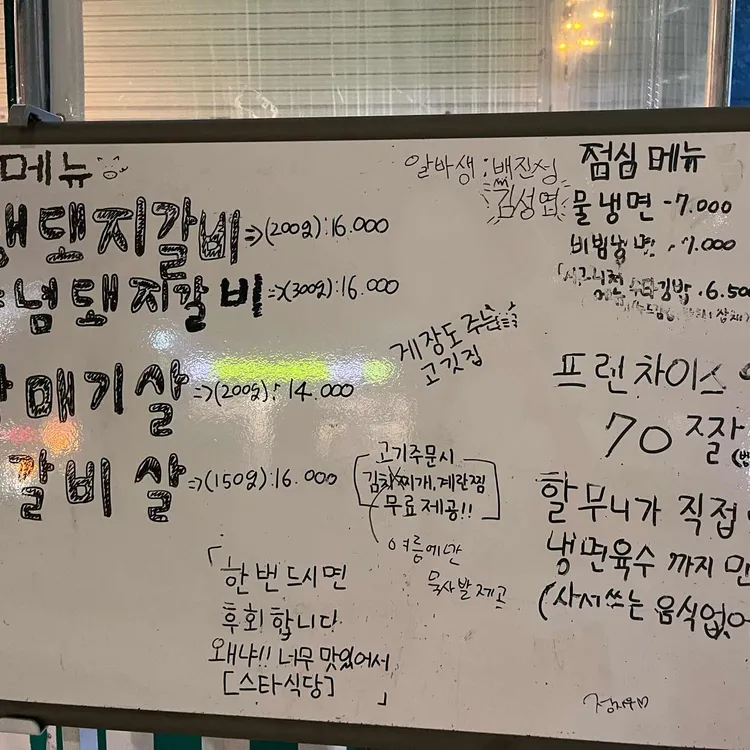 메뉴
생돼지갈비 => (200g) : 16.000
념돼지갈비 => (300g) : 16.000
매기살 => (200g) : 14.000
갈비살 => (150g) : 16.000
알바생 : 백진성
김성엽
게장도 주는
고깃집
고기주문시
김치찌개, 계란찜
무료제공!!
여름에만
묵사발제공
「한번드시면
후회합니다
왜냐!! 너무 맛있어서
[스타식당]」
점심 메뉴
물냉면 - 7.000
비빔냉면 . 7.000
김밥 . 6.50
프랜차이스
70
할무니가 직접
냉면육수 까지 만
(사서쓰는 음식없어